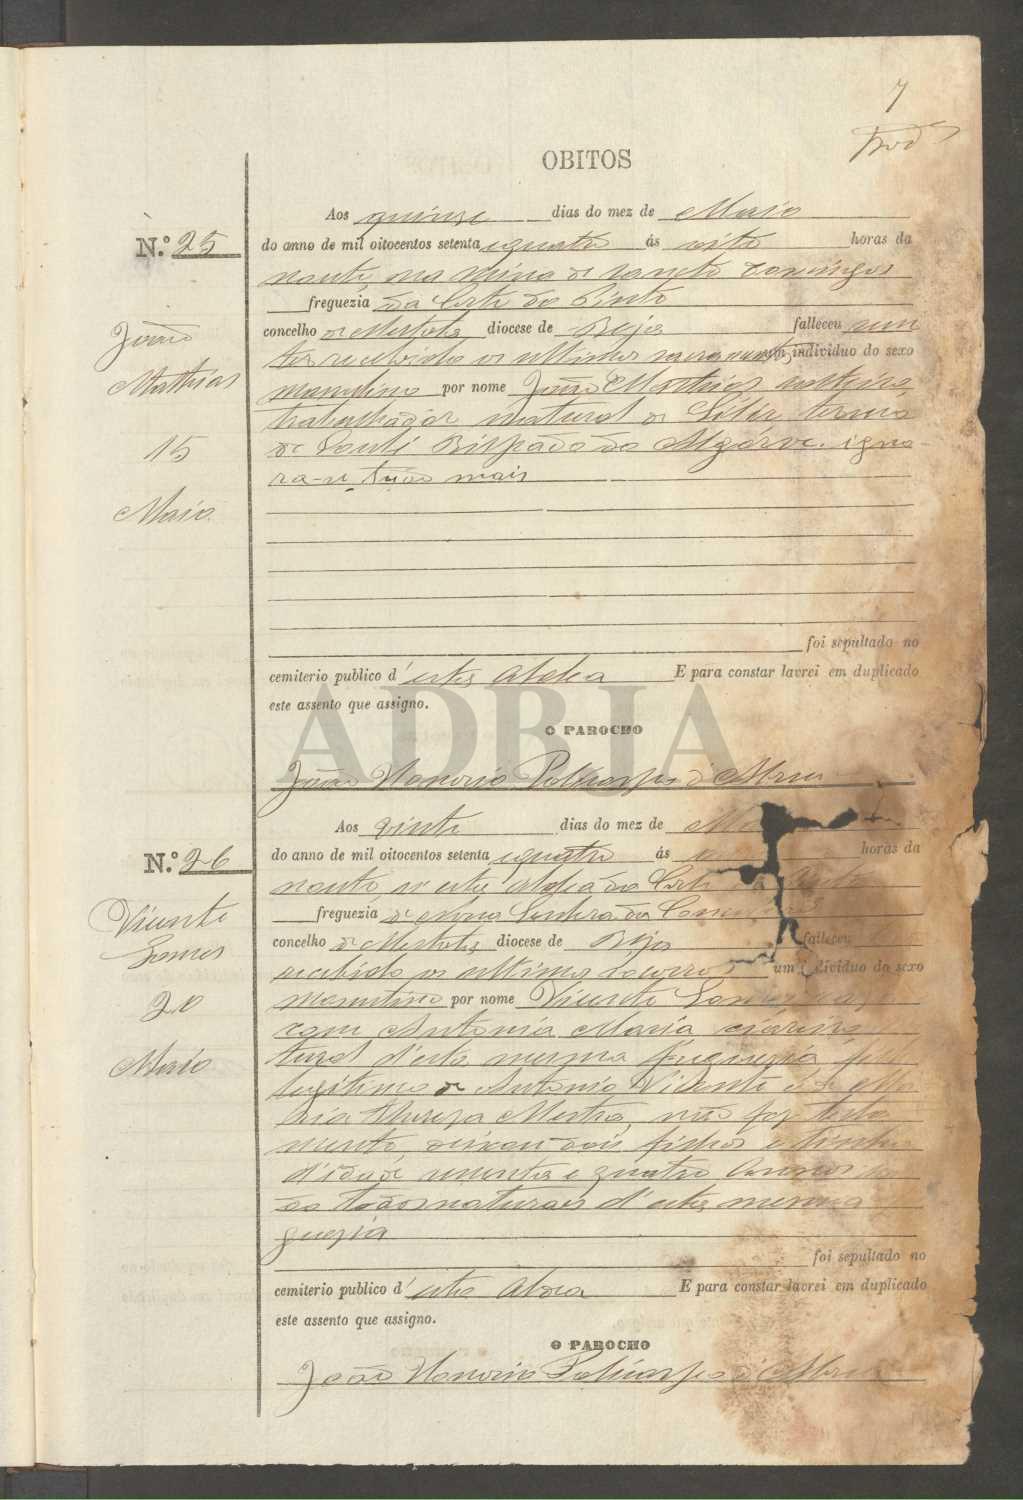 7
OBITOS
Aos quinze dias do mez de Maio
N.º 25
do anno de mil oitocentos setenta e quatro ás oito horas da
noute na Mina de Sancto Domingos
freguezia da Corte do Pinto
concelho de Mertola diocese de Beja falleceu sem
ter recebido os ultimos sacramentos um individuo do sexo
masculino por nome João Mathias solteiro
trabalhador natural de Silir termo
de Loulé Bispado do Algárve. igno-
ra-se tudo mais
João
Mathias
15
Maio
foi sepultado no
cemiterio publico d'esta Aldea E para constar lavrei em duplicado
este assento que assigno.
O PAROCHO
ADBJA
João Honorio Policarpo d'Abreu
Aos vinte dias do mez de
N.º 26
do anno de mil oitocentos setenta e quatro ás horas da
noute n'esta aldea da Corte do Pinto
freguezia de Nossa Senhora da Conceição
concelho de Mertola diocese de Beja falleceu
recebido os ultimos um individuo do sexo
masculino por nome Vicente Gomes
com Antonia Maria
tural d'esta mesma freguezia filho
legitimo de Antonio Vicente e de Ma-
ria Thereza Mestra, não fez testa
mento, deixou dois filhos e tinha
d'idade sesenta e quatro annos
todos naturaes d'esta mesma
guezia
Vicente
Gomes
20
Maio
foi sepultado no
cemiterio publico d'esta Aldea E para constar lavrei em duplicado
este assento que assigno.
O PAROCHO
João Honorio Policarpo d'Abreu